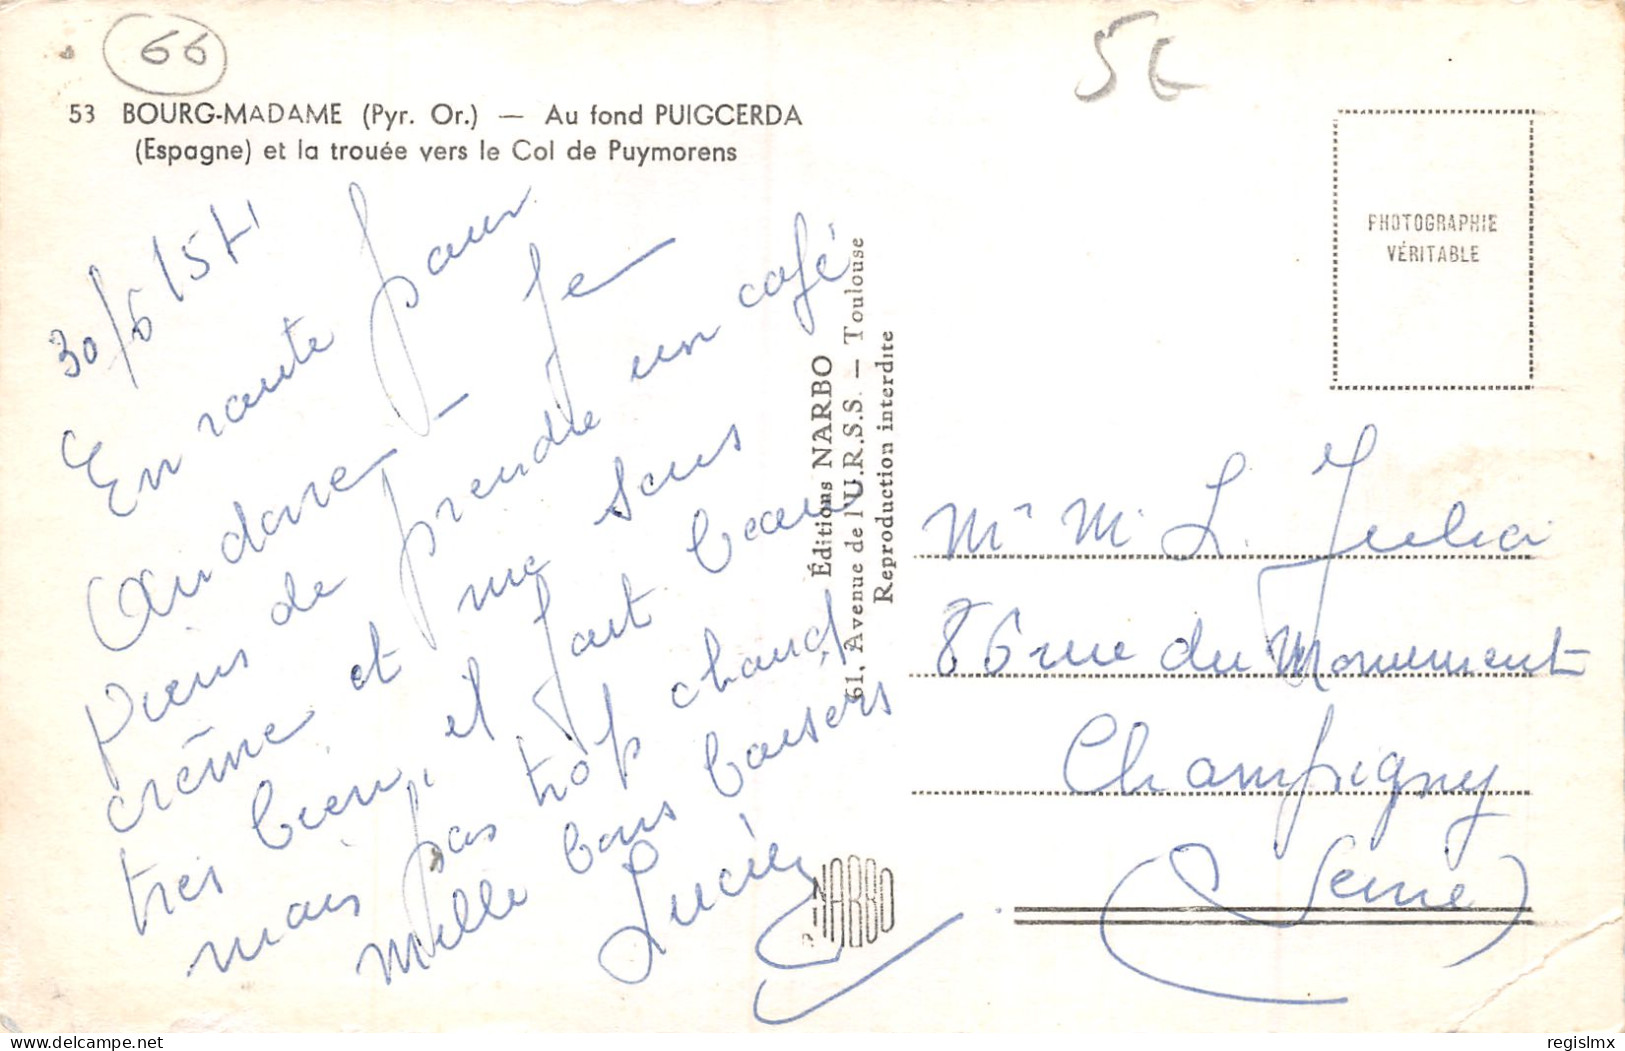 66
5€
53 BOURG-MADAME (Pyr. Or.) — Au fond PUIGCERDA
(Espagne) et la trouée vers le Col de Puymorens
30/6/57
En route pour
Andorre - Je
viens de prendre un café
crème et me sens
très bien, il fait beau
mais pas trop chaud
Mille bons baisers
Lucien
Éditions NARBO
61, Avenue de l'U.R.S.S. — Toulouse
Reproduction interdite
NARBO
PHOTOGRAPHIE
VÉRITABLE
Mr M. L. Julia
86 rue du Monument
Champigny
(Seine)
delcampe.net
regislmx